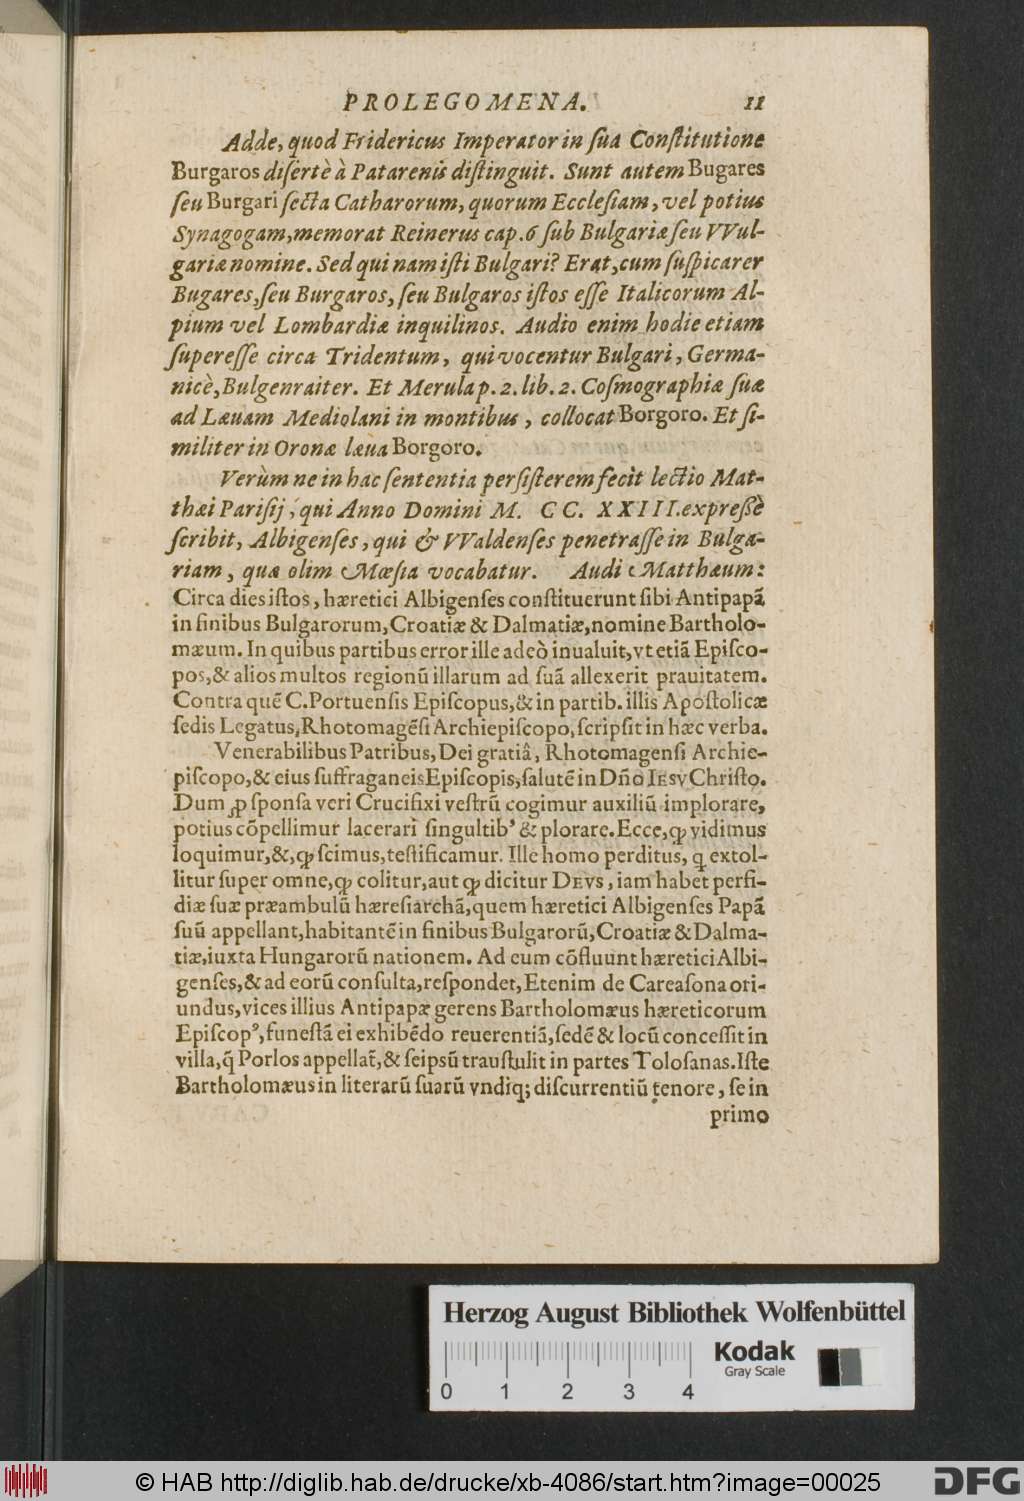 PROLEGOMENA. 11
Adde, quod Fridericus Imperator in ſua Conſtitutione
Burgaros diſertè à Patarenis diſtinguit. Sunt autem Bugares
ſeu Burgari ſecta Catharorum, quorum Eccleſiam, vel potius
Synagogam, memorat Reinerus cap. 6 ſub Bulgariæ ſeu VVul-
gariæ nomine. Sed qui nam iſti Bulgari? Erat, cum ſuſpicarer
Bugares, ſeu Burgaros, ſeu Bulgaros iſtos eſſe Italicorum Al-
pium vel Lombardiæ inquilinos. Audio enim hodie etiam
ſupereſſe circa Tridentum, qui vocentur Bulgari, Germa-
nicè, Bulgenraiter. Et Merula p. 2. lib. 2. Coſmographiæ ſuæ
ad Læuam Mediolani in montibus, collocat Borgoro. Et ſi-
militer in Oronæ læua Borgoro.
Verùm ne in hac ſententia perſiſterem fecit lectio Mat-
thæi Pariſij, qui Anno Domini M. CC. XXIII. expreſſè
ſcribit, Albigenſes, qui & VValdenſes penetraſſe in Bulga-
riam, quæ olim Mœſia vocabatur. Audi Matthæum:
Circa dies iſtos, hæretici Albigenſes conſtituerunt ſibi Antipapã
in finibus Bulgarorum, Croatiæ & Dalmatiæ, nomine Bartholo-
mæum. In quibus partibus error ille adeò inualuit, vt etiã Epiſco-
pos, & alios multos regionũ illarum ad ſuã allexerit prauitatem.
Contra quẽ C. Portuenſis Epiſcopus, & in partib. illis Apoſtolicæ
ſedis Legatus, Rhotomagẽſi Archiepiſcopo, ſcripſit in hæc verba.
Venerabilibus Patribus, Dei gratiâ, Rhotomagenſi Archie-
piſcopo, & eius ſuffraganeis Epiſcopis, ſalutẽ in Dño IESV Chriſto.
Dum ꝓ ſponſa veri Crucifixi veſtrũ cogimur auxiliũ implorare,
potius cõpellimur lacerari ſingultibꝰ & plorare. Ecce, ꝙ vidimus
loquimur, &, ꝙ ſcimus, teſtificamur. Ille homo perditus, ꝗ extol-
litur ſuper omne, ꝙ colitur, aut ꝙ dicitur DEVS, iam habet perfi-
diæ ſuæ præambulũ hæreſiarchã, quem hæretici Albigenſes Papã
ſuũ appellant, habitantẽ in finibus Bulgarorũ, Croatiæ & Dalma-
tiæ, iuxta Hungarorũ nationem. Ad eum cõfluunt hæretici Albi-
genſes, & ad eorũ conſulta, reſpondet, Etenim de Careaſona ori-
undus, vices illius Antipapæ gerens Bartholomæus hæreticorum
Epiſcopꝰ, funeſtã ei exhibẽdo reuerentiã, ſedẽ & locũ conceſſit in
villa, q̃ Porlos appellat̃, & ſeipsũ trauſtulit in partes Toloſanas. Iſte
Bartholomæus in literarũ ſuarũ vndiq; diſcurrentiũ tenore, ſe in
primo
Herzog August Bibliothek Wolfenbüttel
Kodak
Gray Scale
0 1 2 3 4
© HAB http://diglib.hab.de/drucke/xb-4086/start.htm?image=00025
DFG